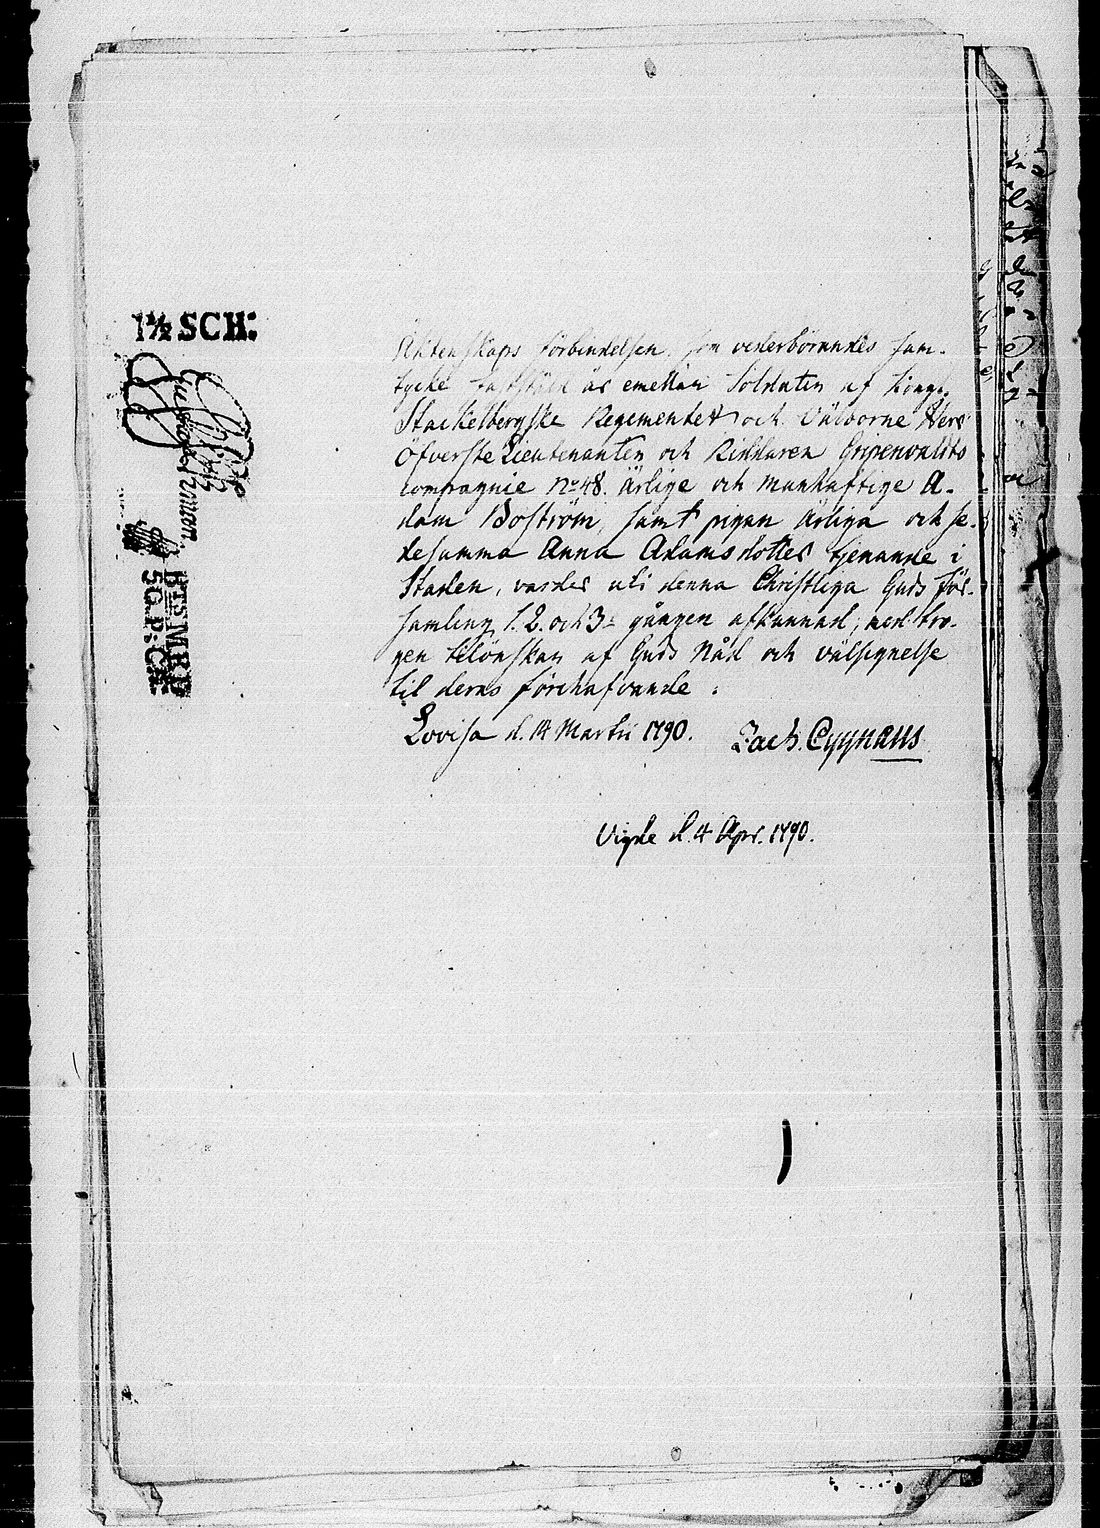 1½ SCH:
Äktenskaps förbindelsen som vederbörandes sam-
tycke är emellan Soldaten af Kongl.
Stackelbergske Regementet och Välborne Herr
Öfverste Lieutenanten och Riddaren Gripenvaldts
Compagnie No 48. ärlige och manhaftige A-
dam Boström, samt pigan ärliga och se-
desamma Anna Adamsdotter tjenande i
Staden, varder uti denna Christliga Guds för-
samling 1. 2. och 3= gången afkunnad, med tro-
gen tilönskan af Guds Nåd och välsignelse
til deras förehafvande.
Lovisa d. 14 Martii 1790. Zach. Cygnæus
Vigde d. 4 Apr. 1790.